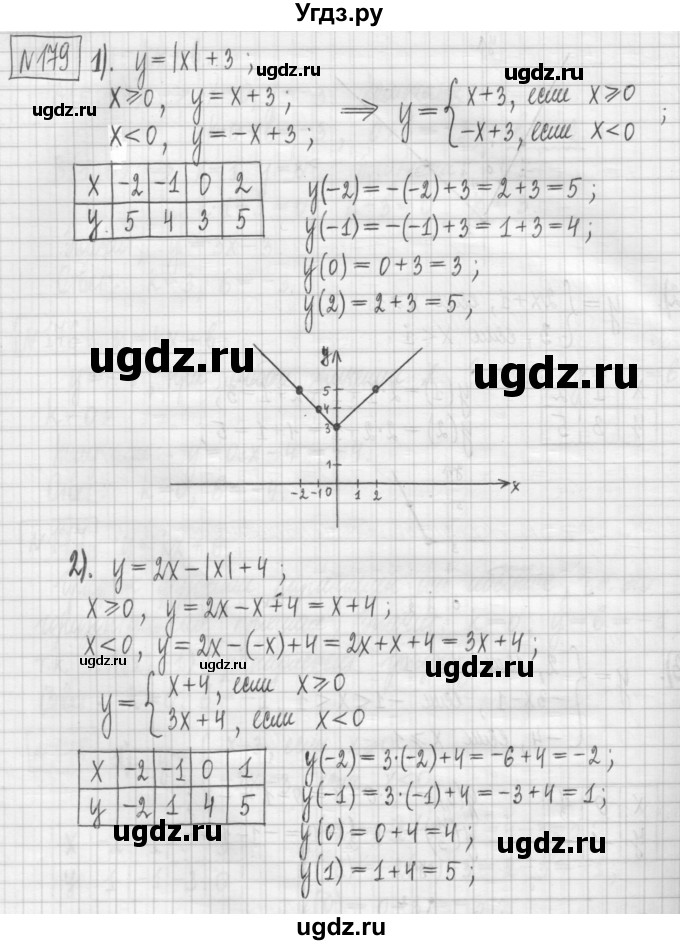 Угдз.ру
№179 1). y = |x| + 3 ;
ugdz.ru
x ⩾ 0, y = x + 3 ;
ugdz.ru
x < 0, y = -x + 3 ;
⟹ y = { x+3, если x ⩾ 0
-x+3, если x < 0 ;
x -2 -1 0 2
y 5 4 3 5
y(-2) = -(-2)+3 = 2+3 = 5 ;
y(-1) = -(-1)+3 = 1+3 = 4 ;
y(0) = 0+3 = 3 ;
y(2) = 2+3 = 5 ;
ugdz.ru
ugdz.ru
y
5
4
3
1
-2 -1 0 1 2 x
2). y = 2x - |x| + 4 ;
x ⩾ 0, y = 2x - x + 4 = x + 4 ;
x < 0, y = 2x - (-x) + 4 = 2x + x + 4 = 3x + 4 ;
ugdz.ru
ugdz.ru
ugdz.ru
y = { x+4, если x ⩾ 0
3x+4, если x < 0
x -2 -1 0 1
y -2 1 4 5
y(-2) = 3·(-2)+4 = -6+4 = -2 ;
y(-1) = 3·(-1)+4 = -3+4 = 1 ;
y(0) = 0+4 = 4 ;
y(1) = 1+4 = 5 ;
ugdz.ru
ugdz.ru
ugdz.ru